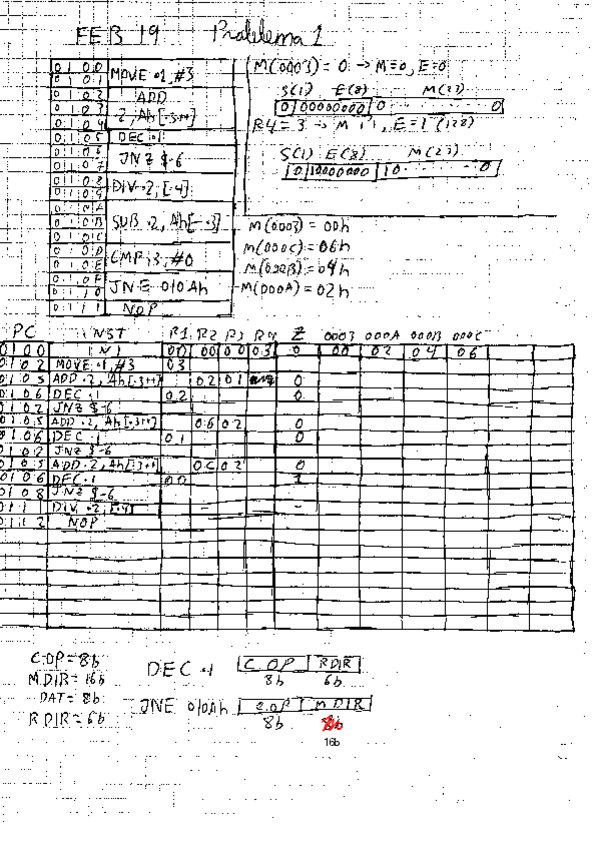 FEB 19 Problema 1
0100
0101 MOVE .1, #3
0102 ADD
0103 .2, Ah[.3++]
0104
0105 DEC .1
0106 JNZ $-6
0107
0108 DIV .2, [.4]
0109
010A SUB .2, Ah[-.3]
010B
010C
010D CMP .3, #0
010E
010F JNE 010Ah
0110
0111 NOP
M(0003) = 0 → M=0, E=0
S(1) E(8) M(23)
0 | 00000000 | 0 ........ 0
S(1) E(8) M(23)
0 | 10000000 | 10 ........ 0
M(0003) = 00h
M(000C) = 06h
M(000B) = 04h
M(000A) = 02h
PC INST R1 R2 R3 R4 Z 0003 000A 000B 000C
0100 INI 00 00 00 03 0 00 02 04 06
0102 MOVE .1, #3 03
0105 ADD .2, Ah[.3++] 02 01 0
0106 DEC .1 02 0
0102 JNZ $-6
0105 ADD .2, Ah[.3++] 06 02 0
0106 DEC .1 01 0
0102 JNZ $-6
0105 ADD .2, Ah[.3++] 0C 02 0
0106 DEC .1 00 1
0108 JNZ $-6
011 DIV .2, [.4] - -
0112 NOP
C.OP=8b
M.DIR=16b
DAT=8b
R.DIR=6b
DEC .1 C.OP R.DIR
8b 6b
JNE 010Ah C.OP M.DIR
8b
16b